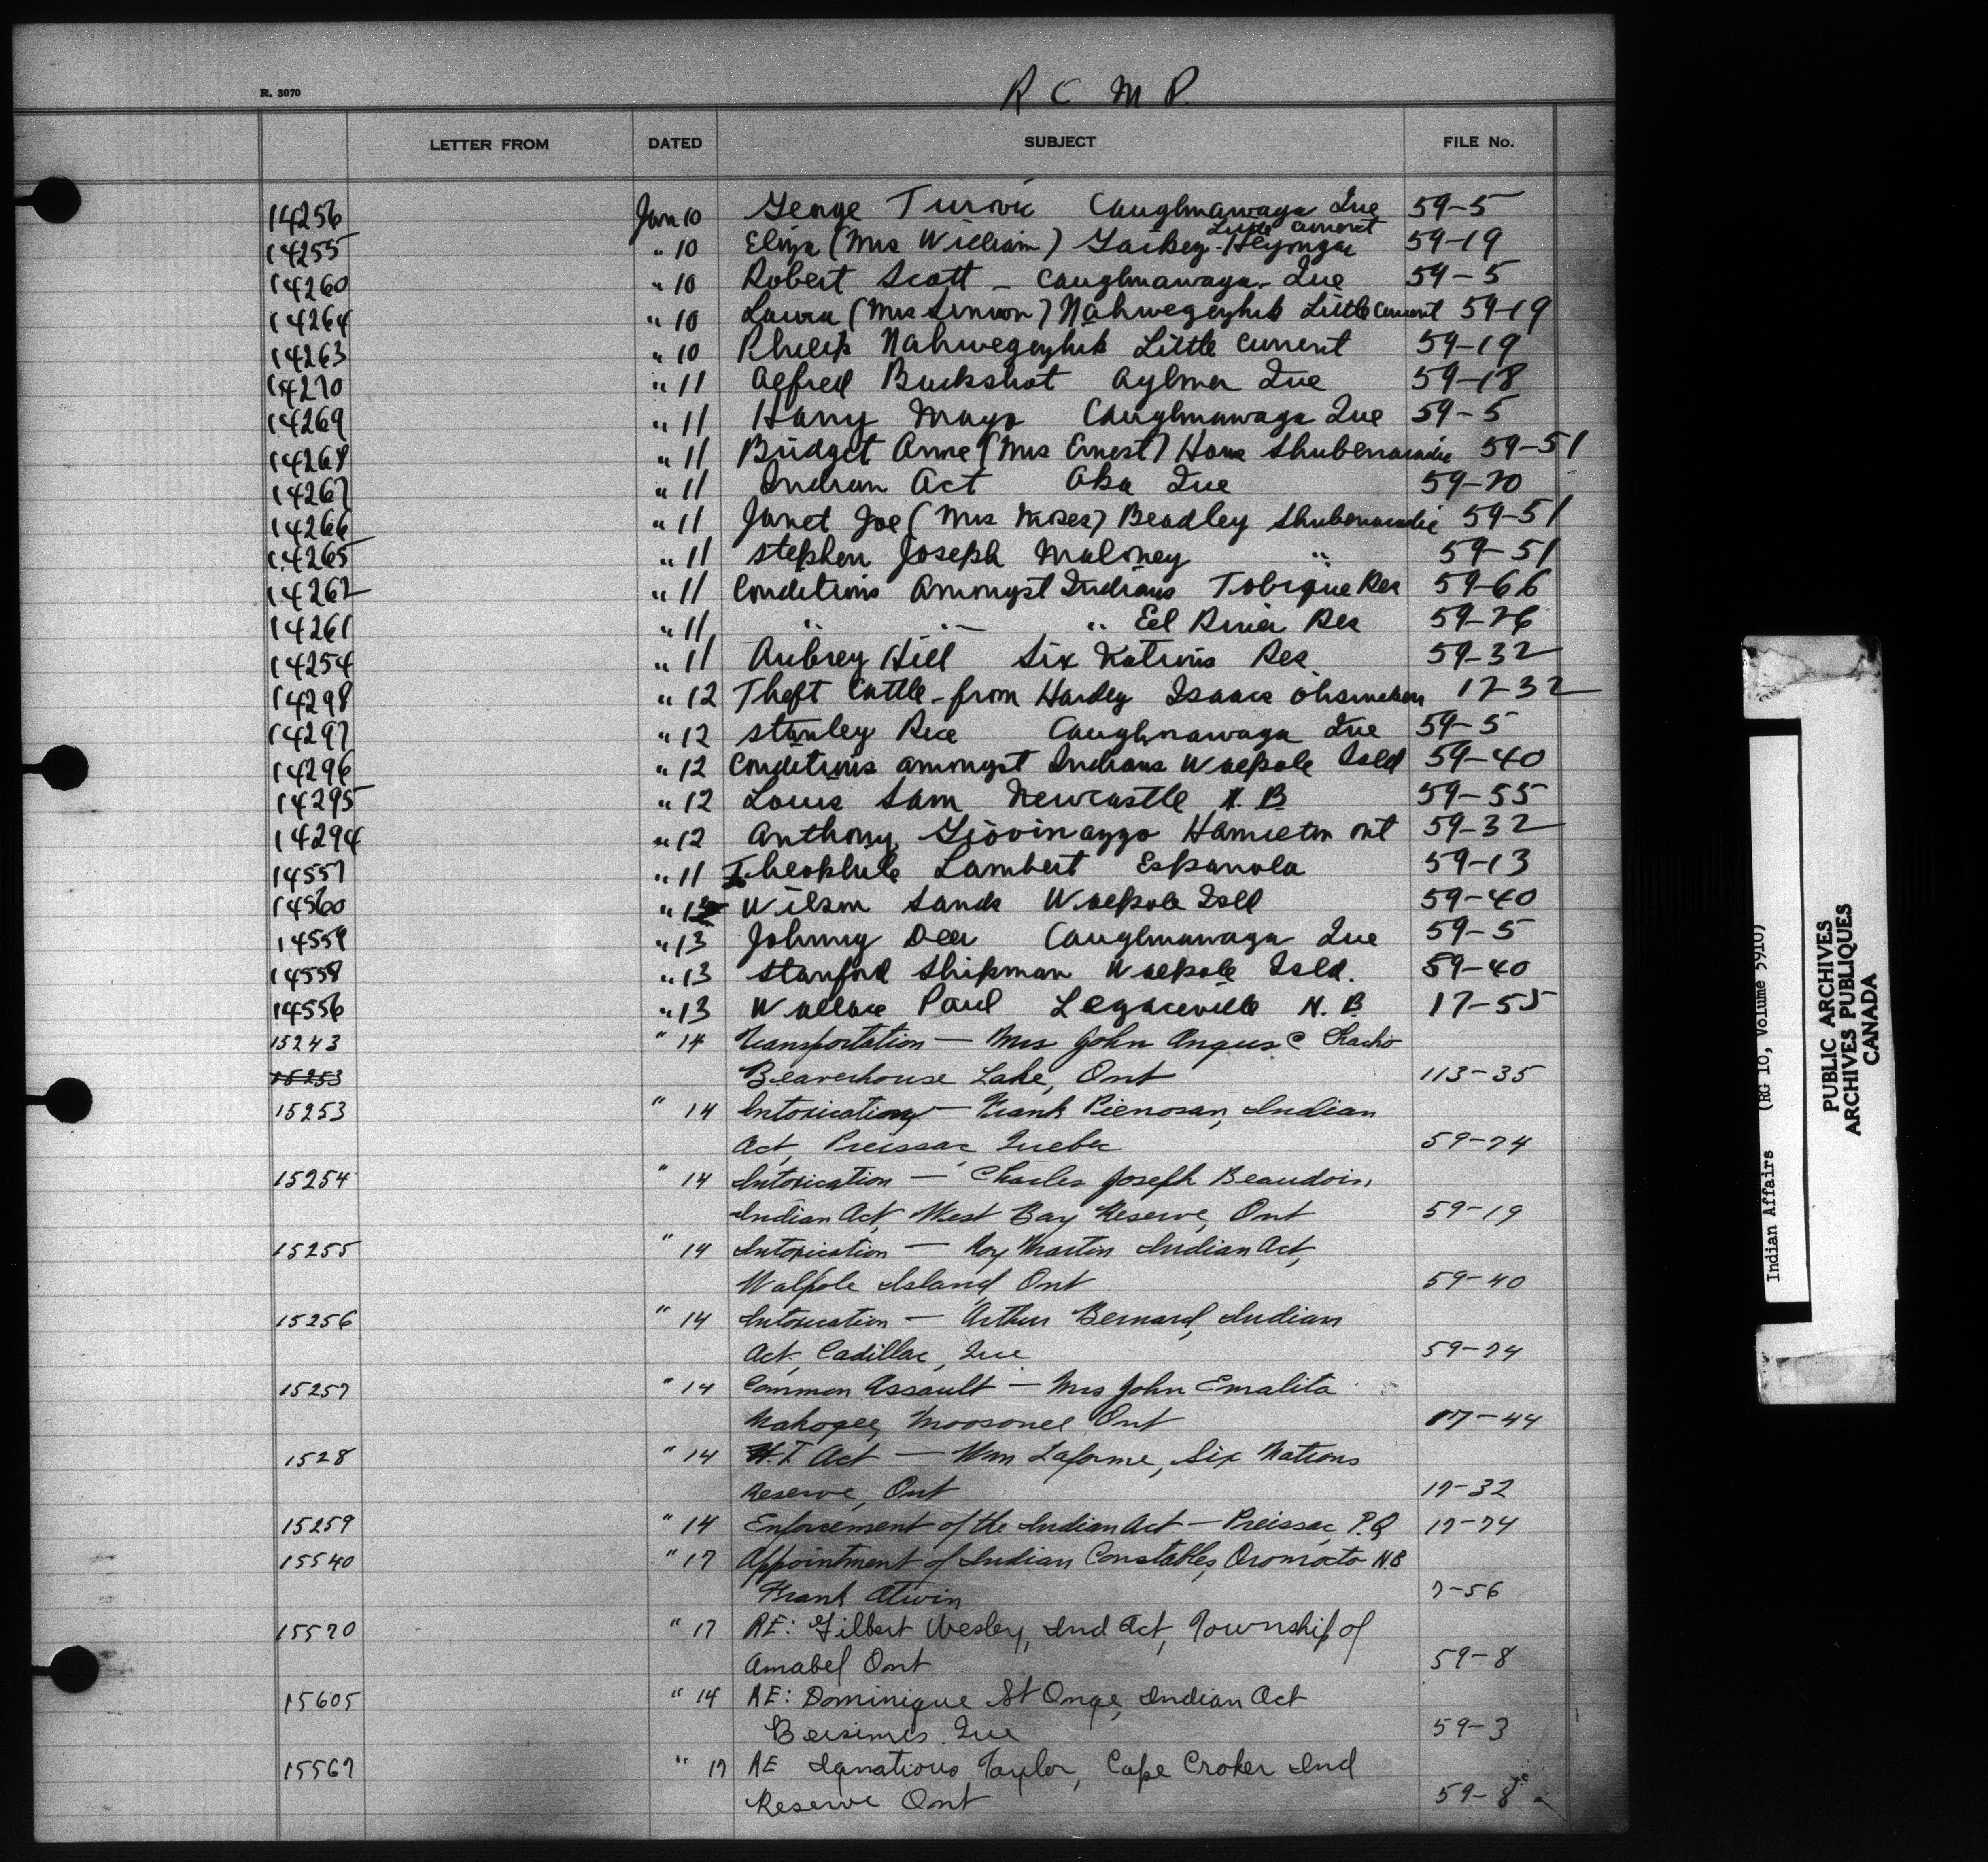 R. 3070
R C M P.
LETTER FROM DATED SUBJECT FILE No.
14256 Jan 10 George Caughnawaga Que 59-5
Little Current
14255 " 10 Eliza (Mrs William) 59-19
14260 " 10 Robert Scott - Caughnawaga - Que 59-5
14264 " 10 Laura (Mrs Simon) Nahwegeyhik Little Current 59-19
14263 " 10 Philip Nahwegeyhik Little Current 59-19
14270 " 11 Alfred Buckshot Aylmer Que 59-18
14269 " 11 Harry Mayo Caughnawaga Que 59-5
14268 " 11 Bridget Anne (Mrs Ernest) Howe Shubenacadie 59-51
14267 " 11 Indian Act Oka Que 59-70
14266 " 11 Janet Joe (Mrs Moses) Beadley Shubenacadie 59-51
14265 " 11 Stephen Joseph Maloney " 59-51
14262 " 11 Conditions Amongst Indians Tobique Res 59-66
14261 " 11 " " " Eel River Res 59-76
14254 " 11 Aubrey Hill Six Nations Res 59-32
14298 " 12 Theft Cattle - from Hardey Isaacs Ohsweken 17-32
14297 " 12 Stanley Rice Caughnawaga Que 59-5
14296 " 12 Conditions amongst Indians Walpole Isld 59-40
14295 " 12 Louis Sam Newcastle N. B 59-55
14294 " 12 Anthony Giovinazzo Hamilton Ont 59-32
14557 " 11 Theophile Lambert Espanola 59-13
14560 " 12 Wilson Sands Walpole Isld 59-40
14559 " 13 Johnny Deer Caughnawaga Que 59-5
14558 " 13 Stanford Shipman Walpole Isld. 59-40
14556 " 13 Wallace Paul Legaceville N. B 17-55
15243 " 14 Transportation — Mrs John Angus C Chacho
15253 Beaverhouse Lake, Ont 113-35
15253 " 14 Intoxication — Frank Pienosan, Indian
Act, Preissac, Quebec 59-74
15254 " 14 Intoxication — Charles Joseph Beaudoin,
Indian Act, West Bay Reserve, Ont 59-19
15255 " 14 Intoxication — Roy Martin Indian Act,
Walpole Island, Ont 59-40
15256 " 14 Intoxication — Arthur Bernard, Indian
Act, Cadillac, Que 59-74
15257 " 14 Common Assault — Mrs John Emalita
Nakogee, Moosonee Ont 17-44
1528 " 14 H.T. Act — Wm Laforme, Six Nations
Reserve, Ont 17-32
15259 " 14 Enforcement of the Indian Act — Preissac, P.Q 17-74
15540 " 17 Appointment of Indian Constables, Oromocto N.B
Frank Atwin 7-56
15570 " 17 RE: Gilbert Wesley, Ind Act, Township of
Amabel Ont 59-8
15605 " 14 RE: Dominique St Onge, Indian Act
Bersimis. Que 59-3
15567 " 17 RE Ignatious Taylor, Cape Croker Ind
Reserve Ont 59-8
Indian Affairs (RG 10, Volume 5910)
PUBLIC ARCHIVES
ARCHIVES PUBLIQUES
CANADA